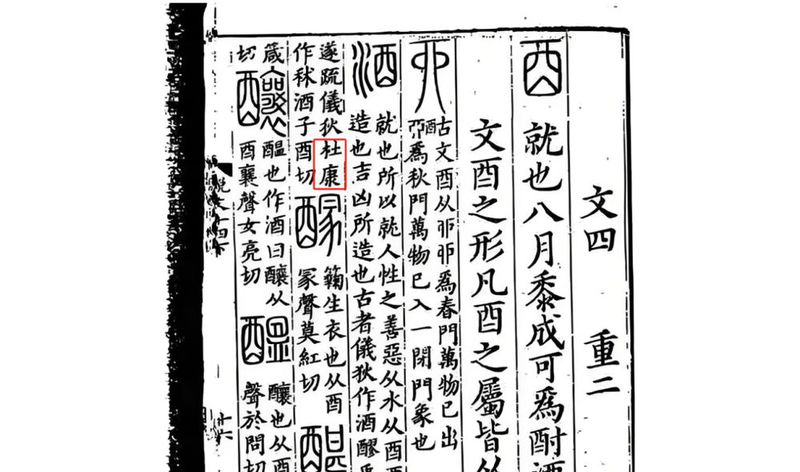 文四 重二
酉 就也八月黍成可爲酎酒
文酉之形凡酉之屬皆从
丣 古文酉从丣丣爲春門萬物已出
丣爲秋門萬物已入一閉門象也
酒 就也所以就人性之善惡从水从酉酉
造也吉凶所造也古者儀狄作酒醪禹
遂疏儀狄杜康
作秫酒子酉切
生衣也从酉
冡聲莫紅切
箴
切
釀 醞也作酒曰釀从
酉襄聲女亮切
醞 釀也从酉
聲於問切
十六